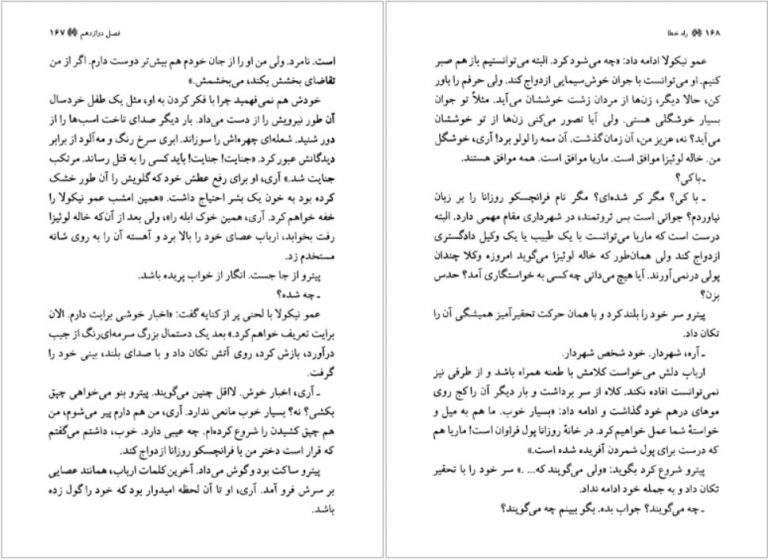 فصل دوازدهم ۱۶۷
است. نامرد. ولی من او را از جان خودم هم بیش‌تر دوست دارم. اگر از من
تقاضای بخشش بکند، می‌بخشمش.»
خودش هم نمی‌فهمید چرا با فکر کردن به او، مثل یک طفل خردسال
آن طور نیرویش را از دست می‌داد. بار دیگر صدای تاخت اسب‌ها را از
دور شنید. شعله‌ای چهره‌اش را سوزاند. ابری سرخ رنگ و مه‌آلود از برابر
دیدگانش عبور کرد. «جنایت! جنایت! باید کسی را به قتل رساند. مرتکب
جنایت شد.» آری، او برای رفع عطش خود که گلویش را آن طور خشک
کرده بود به خون یک بشر احتیاج داشت. «همین امشب عمو نیکولا را
خفه خواهم کرد. آری، همین خوک ابله را»، ولی بعد از آن‌که خاله لوئیزا
رفت بخوابد، ارباب عصای خود را بالا برد و آهسته آن را به روی شانه
مستخدم زد.
پیترو از جا جست. انگار از خواب پریده باشد.
ـ چه شده؟
عمو نیکولا با لحنی پر از کنایه گفت: «اخبار خوشی برایت دارم. الان
برایت تعریف خواهم کرد.» بعد یک دستمال بزرگ سرمه‌ای‌رنگ از جیب
درآورد، بازش کرد، روی آتش تکان داد و با صدای بلند، بینی خود را
گرفت.
ـ آری، اخبار خوش. لااقل چنین می‌گویند. پیترو بنو می‌خواهی چپق
بکشی؟ نه؟ بسیار خوب مانعی ندارد. آری، من هم دارم پیر می‌شوم، من
هم چپق کشیدن را شروع کرده‌ام. چه عیبی دارد. خوب، داشتم می‌گفتم
که قرار است دختر من با فرانچسکو روزانا ازدواج کند.
پیترو ساکت بود و گوش می‌داد. آخرین کلمات ارباب، همانند عصایی
بر سرش فرو آمد. آری، او تا آن لحظه امیدوار بود که خود را گول زده
باشد.
۱۶۸ راه خطا
عمو نیکولا ادامه داد: «چه می‌شود کرد. البته می‌توانستیم باز هم صبر
کنیم. او می‌توانست با جوان خوش‌سیمایی ازدواج کند. ولی حرفم را باور
کن، حالا دیگر، زن‌ها از مردان زشت خوششان می‌آید. مثلاً تو جوان
بسیار خوشگلی هستی. ولی آیا تصور می‌کنی زن‌ها از تو خوششان
می‌آید؟ نه، عزیز من، آن زمان گذشت. آن ممه را لولو برد! آری، خوشگل
من. خاله لوئیزا موافق است. ماریا موافق است. همه موافق هستند.
ـ با کی؟
ـ با کی؟ مگر کر شده‌ای؟ مگر نام فرانچسکو روزانا را بر زبان
نیاوردم؟ جوانی است بس ثروتمند، در شهرداری مقام مهمی دارد. البته
درست است که ماریا می‌توانست با یک طبیب یا یک وکیل دادگستری
ازدواج کند ولی همان‌طور که خاله لوئیزا می‌گوید امروزه وکلا چندان
پولی درنمی‌آورند. آیا هیچ می‌دانی چه کسی به خواستگاری آمد؟ حدس
بزن؟
پیترو سر خود را بلند کرد و با همان حرکت تحقیرآمیز همیشگی آن را
تکان داد.
ـ آره، شهردار. خود شخص شهردار.
ارباب دلش می‌خواست کلامش با طعنه همراه باشد و از طرفی نیز
نمی‌توانست افاده نکند. کلاه از سر برداشت و بار دیگر آن را کج روی
موهای درهم خود گذاشت و ادامه داد: «بسیار خوب. ما هم به میل و
خواستهٔ شما عمل خواهیم کرد. در خانهٔ روزانا پول فراوان است! ماریا هم
که درست برای پول شمردن آفریده شده است.»
پیترو شروع کرد بگوید: «ولی می‌گویند که... .» سر خود را با تحقیر
تکان داد و به جمله خود ادامه نداد.
ـ چه می‌گویند؟ جواب بده. بگو ببینم چه می‌گویند؟